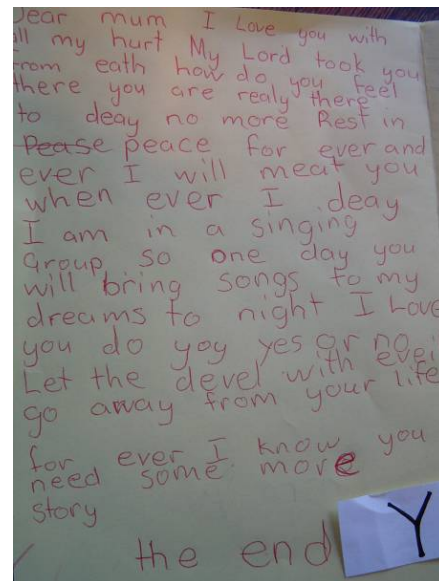 Dear mum I Love you with
all my hurt My Lord took you
from eath how do you feel
there you are realy there
to deay no more Rest in
Pease peace for ever and
ever I will meat you
when ever I deay
I am in a singing
Group so one day you
will bring songs to my
dreams to night I Love
you do yoy yes or no
Let the devel with evei
go away from your life
for ever I know you
need some more
story
the end
Y